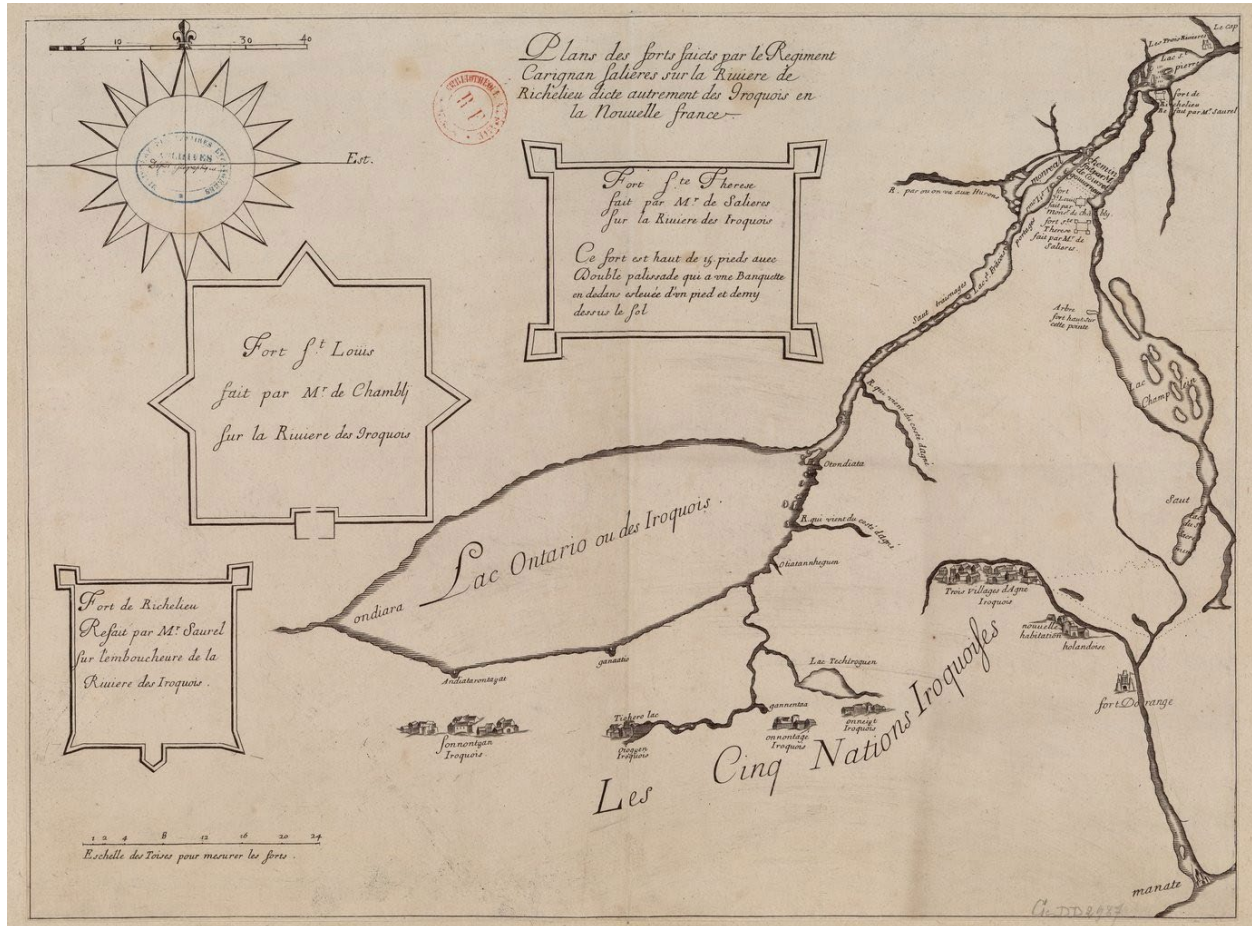 5 10 30 40
Plans des forts faicts par le Regiment
Carignan Salieres sur la Riuiere de
Richelieu dicte autrement des Iroquois en
la Nouuelle france
Est.
Fort S.te Therese
fait par Mr. de Salieres
sur la Riuiere des Iroquois
Ce fort est haut de 15 pieds auec
Double palissade qui a vne Banquette
en dedans esleuée d'vn pied et demy
dessus le sol
Fort S.t Loüis
fait par Mr de Chamblj
sur la Riuiere des Iroquois
Fort de Richelieu
Refait par Mr Saurel
sur l'emboucheure de la
Riuiere des Iroquois.
1 2 4 8 12 16 20 24
Eschelle des Toises pour mesurer les forts.
Le cap
Les Trois Riuieres
Lac St.
pierre
fort de
Richelieu
Refait par Mr. Saurel
R. par ou on va aux Hurons
monreal
chemin
fait par Mr.
de Courcel
fort
St. Louis
fait par
Monsr. de chambly.
fort Ste.
Therese
fait par Mr. de
Salieres.
portages
Lac St. francois
Saut trainages
Arbre
fort haut sur
cette pointe
Lac
Champlein
R. qui vient du costé d'Agné
Otondiata
R. qui vient du costé d'Agné
Otiatannheguen
Saut
Lac Ontario ou des Iroquois.
ondiara
Andiatarontagat
ganaatio
Trois Villages d'Agne
Iroquois
nouuelle
habitation
holandoise
Lac Techiroguen
fort Dorange
Sonnontgan
Iroquois.
Tichero lac
Oiogoen
Iroquois
gannentaa
onnontagé
Iroquois
onneigt
Iroquois
Les Cinq Nations Iroquoises
manate
Ge DD 2987